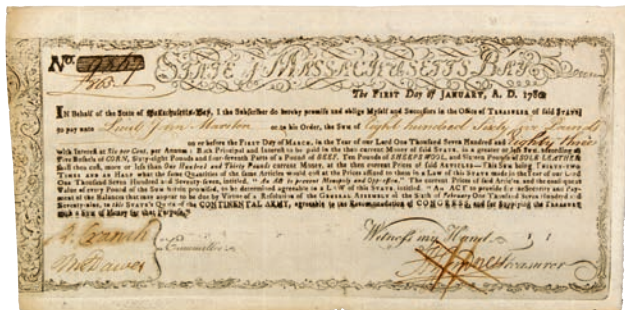 No.
STATE of MASSACHUSETTS-BAY.
The FIRST Day of JANUARY, A. D. 1780
IN Behalf of the State of Massachusetts-Bay, I the Subscriber do hereby promise and oblige Myself and Successors in the Office of TREASURER of said STATE,
to pay unto or to his Order, the Sum of Eight hundred Sixty five Pounds
on or before the FIRST Day of MARCH, in the Year of our Lord One Thousand Seven Hundred and Eighty three
with Interest at Six per Cent. per Annum : Both Principal and Interest to be paid in the then current Money of said STATE, in a greater or less SUM, according as
Five Bushels of CORN, Sixty-eight Pounds and four-seventh Parts of a Pound of BEEF, Ten Pounds of SHEEPS WOOL, and Sixteen Pounds of SOLE LEATHER
shall then cost, more or less than One Hundred and Thirty Pounds current Money, at the then current Prices of said ARTICLES—This SUM being THIRTY-TWO
TIMES and an HALF what the same Quantities of the same Articles would cost at the Prices affixed to them in a LAW of this STATE made in the Year of our Lord
One Thousand Seven Hundred and Seventy-seven, intitled, "An ACT to prevent Monopoly and Oppression." The current Prices of said Articles, and the consequent
Value of every Pound of the Sum herein promised, to be determined agreeable to a LAW of this STATE, intitled, "An ACT to provide for the Security and Pay-
ment of the Balances that may appear to be due by Virtue of a Resolution of the GENERAL ASSEMBLY of the Sixth of February One Thousand Seven Hundred and
Seventy-nine, to this STATE'S Quota of the CONTINENTAL ARMY, agreeable to the Recommendation of CONGRESS, and for Supplying the TREASURY
with a Sum of Money for that Purpose."
R. Cranch
Witness my Hand
Committee
Tho Dawes
Treasurer